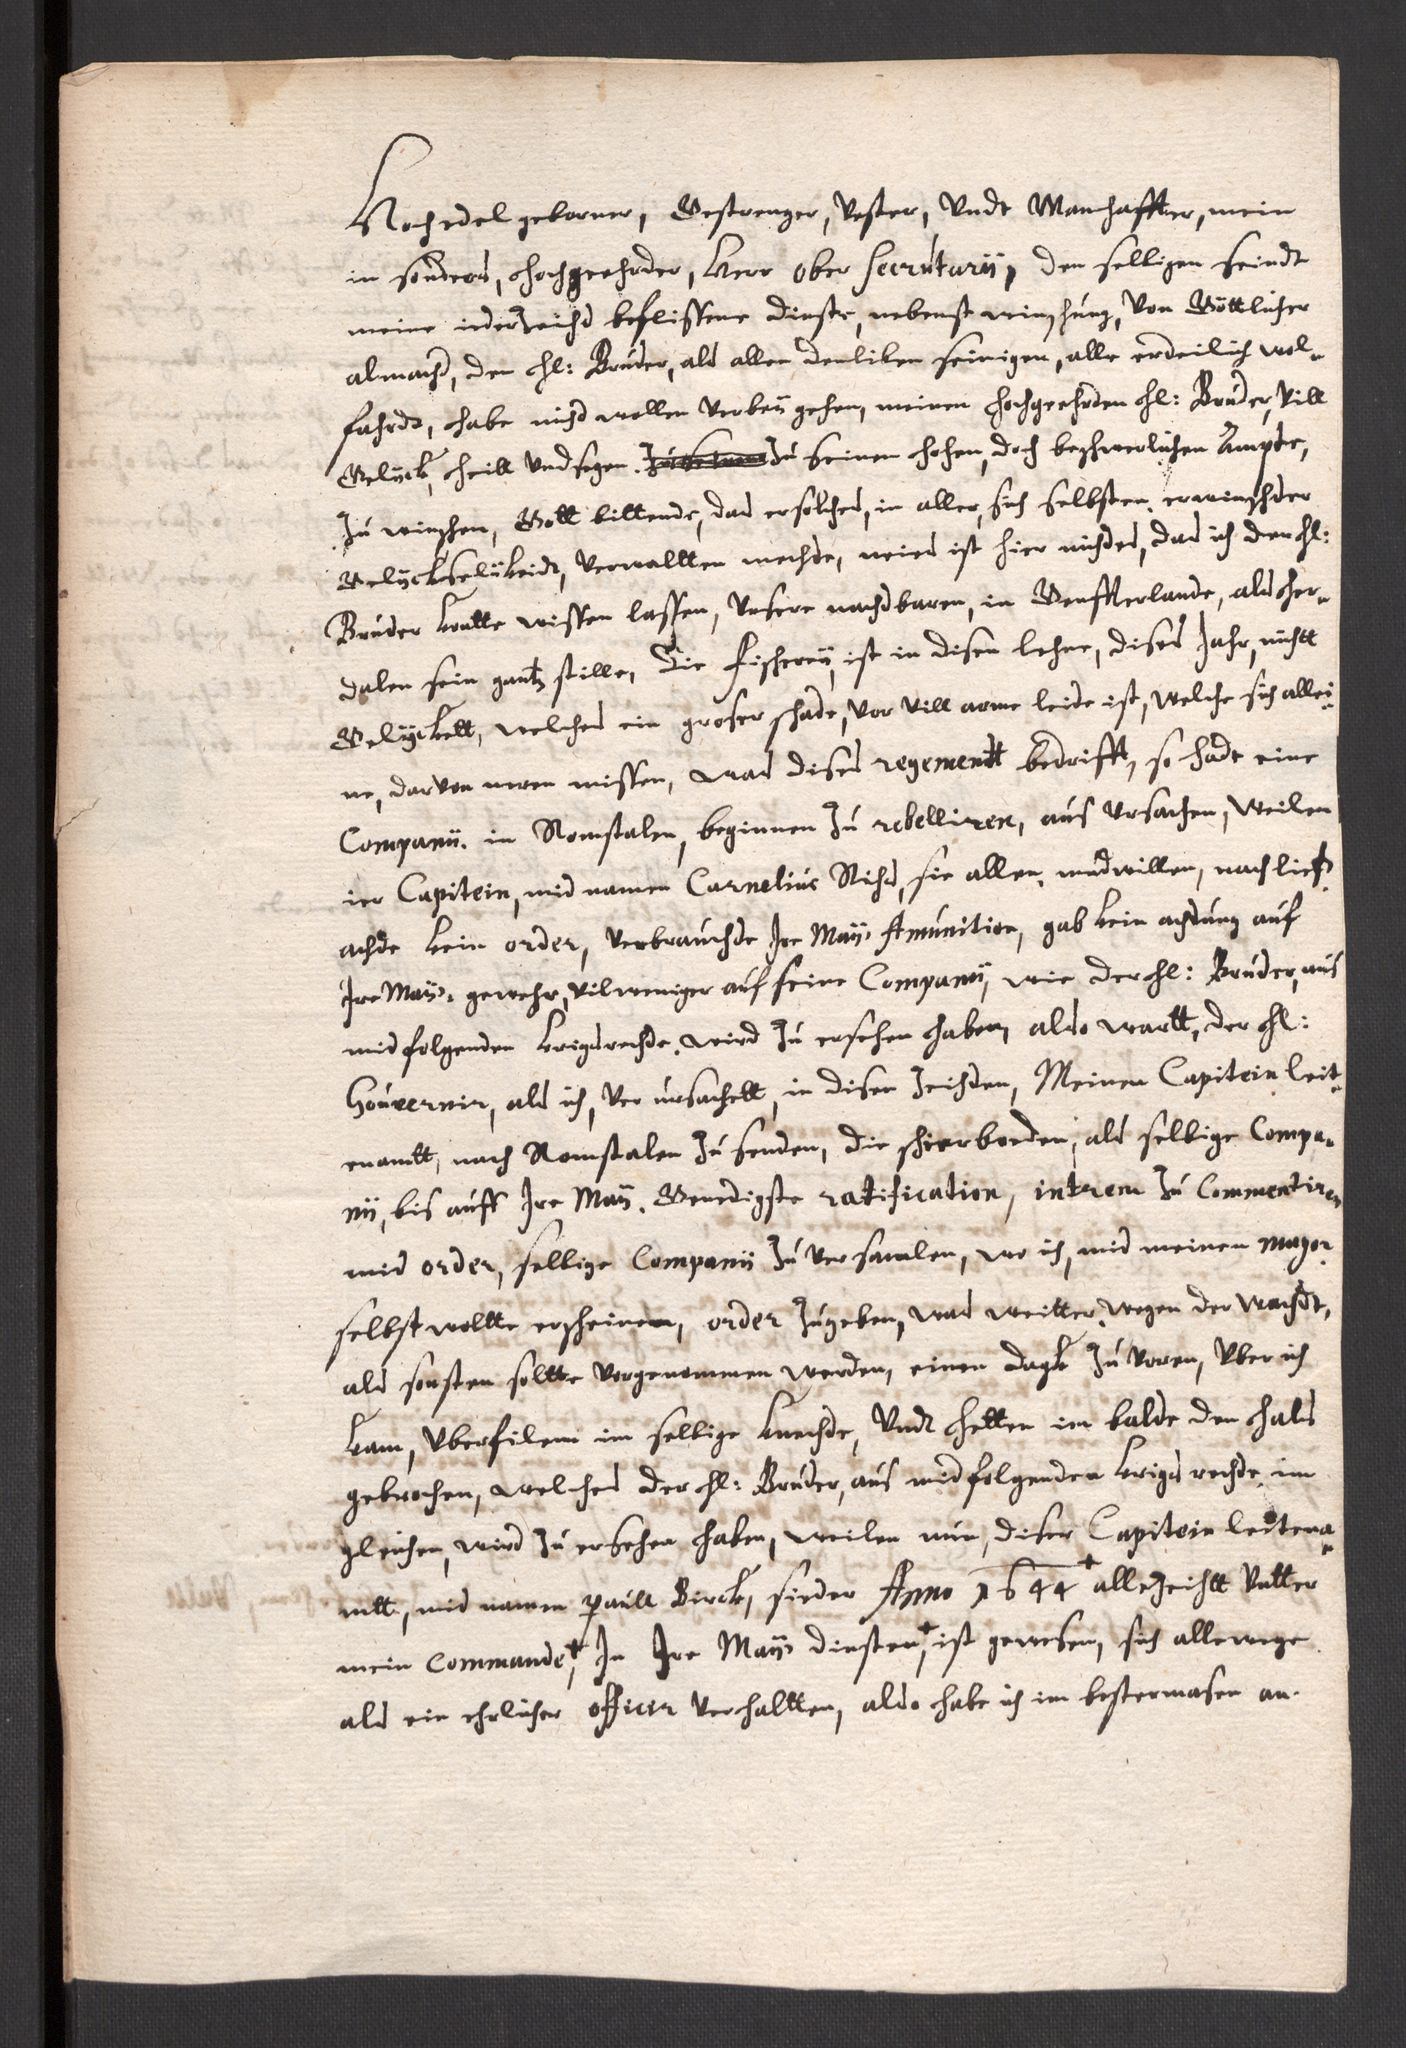 Hochedel geborner, Gestrenger, Vester, Undt Manhaffter, mein
in sonders, hochgeehrder, Herr ober Secrutarÿ, den selbigen seindt
meine ieder Zeichd beflissene dinste, nebenst winschung, von Göttlicher
almachd, den hl: Bruder, als allen denliben seinigen, alle erdeilich wol-
fahrdt, habe nichd wollen verbeÿ gehen, meinen hochgeehrden hl: Bruder, vill
Gelyck, heill und segen. Zu seinen hohen, doch beschwerlichen Ampte,
Zu winschen, Gott bittende, das er solches, in aller, sich selbsten erwinschder
Gelyckselikeidt, verwallten mechde, neies ist hier nichdes, das ich den hl:
Bruder kontte wissen lassen, unsere nachdbaren, in Genffterlande, als her-
dalen sein gantz stille, Die Fischereÿ, ist in disen lehne, dises Jahr, nichtt
Gelyckett, welches ein groser schade, vor vill arme leide ist, welche sich allei-
ne, darvon neren missen, was dises regementt bedrifft, so hadt eine
Companÿ. in Romstalen, beginnen Zu rebelliren, aus ursachen, weilen
ier Capitein, mid namen Carnelius Richd, sie allen mudwillen, nach liess
achde kein order, verbrauchde Ire Maÿ: Amunition, gab kein achdung auf
Ire Maÿ: gewehr, vilweniger auf seine Companÿ, wie der hl: Bruder, aus
mid folgenden krigsrechde. wird Zu ersehen haben, also wartt, der hl:
Gouvernir, als ich, ver ursachett, in disen Zeichden, Meinen Capitein leit-
enamtt, nach Romstalen Zu senden, die schierborden, als selbige Compa-
nÿ, bis auff Ire Maÿ. Genedigste ratification, intrem Zu Commentiren
mid order, selbige Companÿ Zu versamlen, wo ich, mid meinen mayor
selbst wollte erscheinen, order Zugeben, was weitter, wegen der wachdt,
als sonsten sollte vorgenommen werden, einen dagk Zu voren, Uber ich
kam, Uberfilem im selbige knechde, Undt hetten im balde den hals
gebrochen, welches der hl: Bruder, aus midfolgenden krigs rechde, im
gleichen, wird Zu ersehen haben, weilen nun, diser Capitein leitena-
mtt, mid namen paull Birck, sieder Anno 1644 alleZeichtt Untter
mein Commande, In Ire Maÿ: dinsten, ist gewesen, sich allewege
als ein ehrlicher officer verhaltten, also habe ich im bestermasen an-